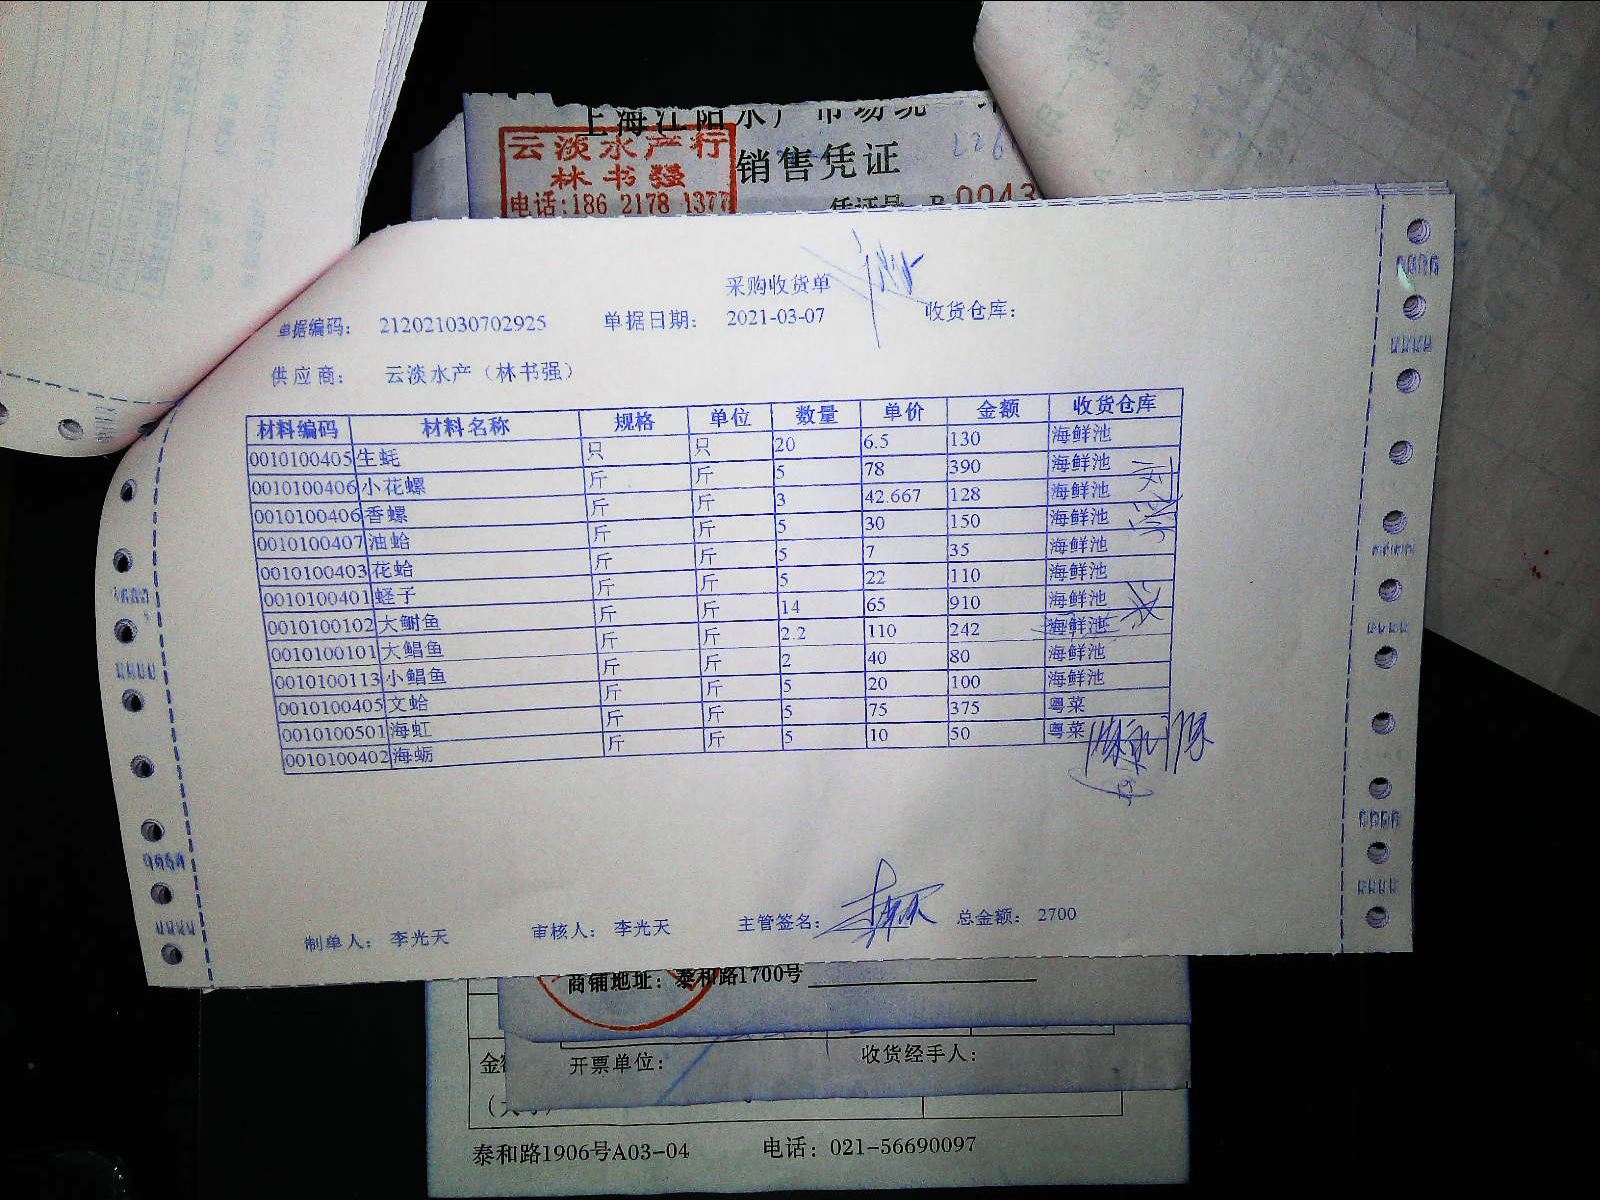 上海江阳水产市场统一
云淡水产行
林书强
电话:186 2178 1377
销售凭证
凭证号 B 0043
采购收货单
单据编码: 212021030702925 单据日期: 2021-03-07 收货仓库:
供应商: 云淡水产（林书强）
材料编码 材料名称 规格 单位 数量 单价 金额 收货仓库
0010100405 生蚝 只 只 20 6.5 130 海鲜池
0010100406 小花螺 斤 斤 5 78 390 海鲜池
0010100406 香螺 斤 斤 3 42.667 128 海鲜池
0010100407 油蛤 斤 斤 5 30 150 海鲜池
0010100403 花蛤 斤 斤 5 7 35 海鲜池
0010100401 蛏子 斤 斤 5 22 110 海鲜池
0010100102 大鲥鱼 斤 斤 14 65 910 海鲜池
0010100101 大鲳鱼 斤 斤 2.2 110 242 海鲜池
0010100113 小鲳鱼 斤 斤 2 40 80 海鲜池
0010100405 文蛤 斤 斤 5 20 100 海鲜池
0010100501 海虹 斤 斤 5 75 375 粤菜
0010100402 海蛎 斤 斤 5 10 50 粤菜
制单人: 李光天 审核人: 李光天 主管签名: 总金额: 2700
商铺地址: 泰和路1700号
开票单位: 收货经手人:
泰和路1906号A03-04 电话: 021-56690097